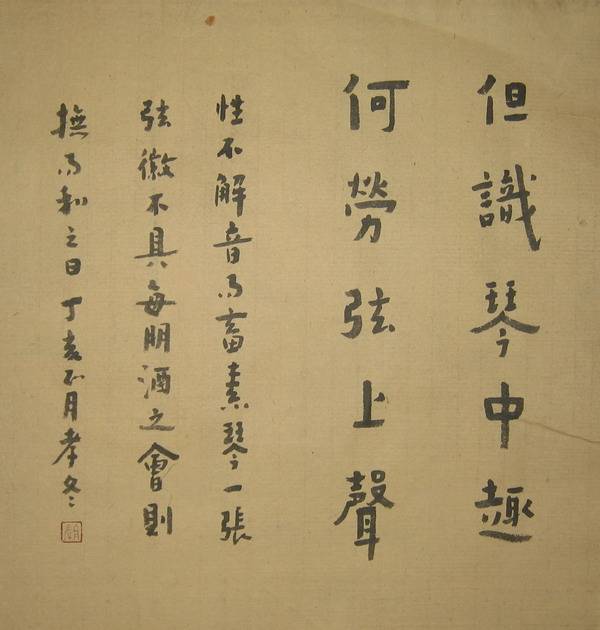 但識琴中趣
何勞弦上聲
性不解音而畜素琴一張
弦徽不具每朋酒之會則
撫而和之曰丁亥正月孝冬